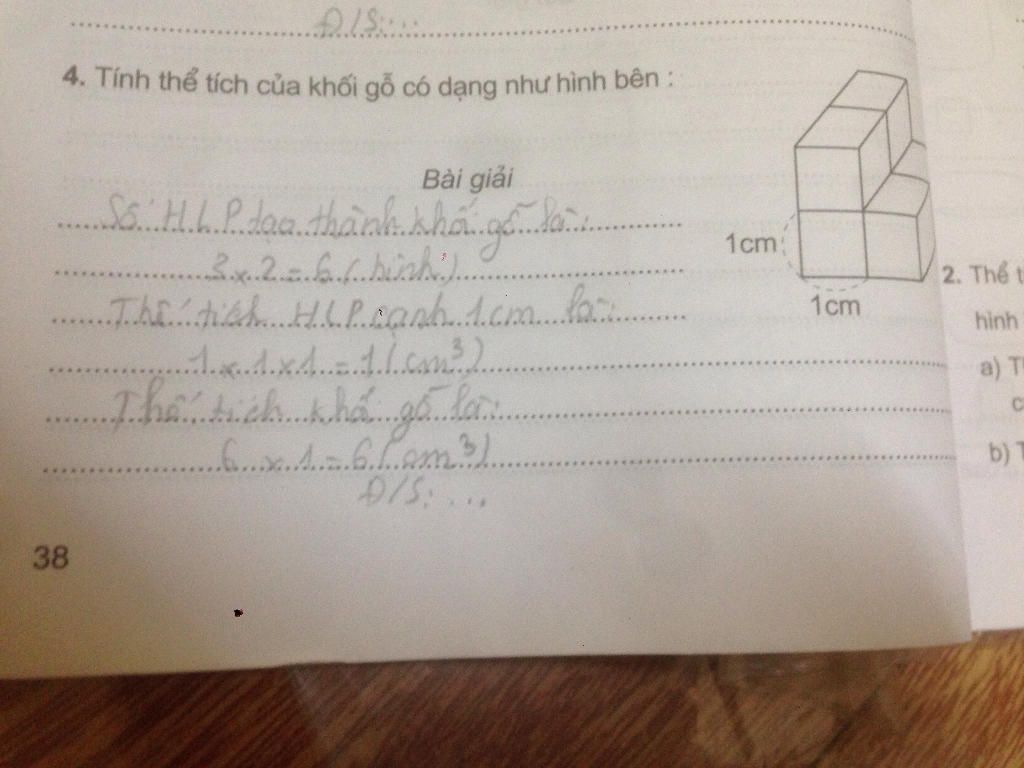 Đ/S:...
4. Tính thể tích của khối gỗ có dạng như hình bên :
Bài giải
Số HLP tạo thành khối gỗ là:
3 x 2 = 6 (hình)
Thể tích HLP cạnh 1cm là:
1 x 1 x 1 = 1 (cm³)
Thể tích khối gỗ là:
6 x 1 = 6 (cm³)
Đ/S: ...
1cm
1cm
38
2. Thể t
hình
a) T
c
b) T